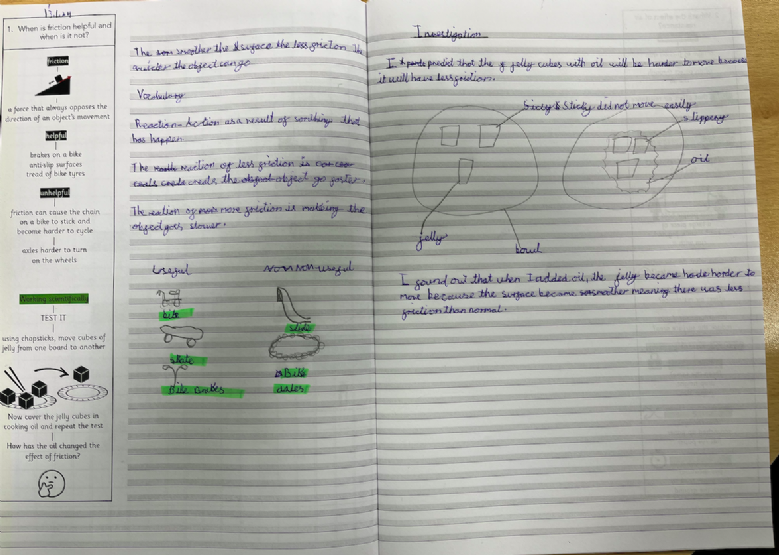 Friday
1. When is friction helpful and
when is it not?
friction
a force that always opposes the
direction of an object's movement
helpful
brakes on a bike
anti-slip surfaces
tread of bike tyres
unhelpful
friction can cause the chain
on a bike to stick and
become harder to cycle
axles harder to turn
on the wheels
Working scientifically
TEST IT
using chopsticks, move cubes of
jelly from one board to another
Now cover the jelly cubes in
cooking oil and repeat the test
How has the oil changed the
effect of friction?
The smother the surface the less friction the
quicker the object can go
Vocabulary
Reaction - Action as a result of somthing that
has happen
The reaction of less friction is
create the object object go faster.
The reation of more friction is making the
object go slower.
Useful
Non useful
bike
slide
skate
Bike brakes
Bike
axles
Investigation
I predict that the jelly cubes with oil will be harder to move because
it will have less friction.
Sticky did not move easily
slippery
oil
jelly
bowl
I found out that when I added oil, the jelly became harder to
move because the surface became smother meaning there was less
friction than normal.